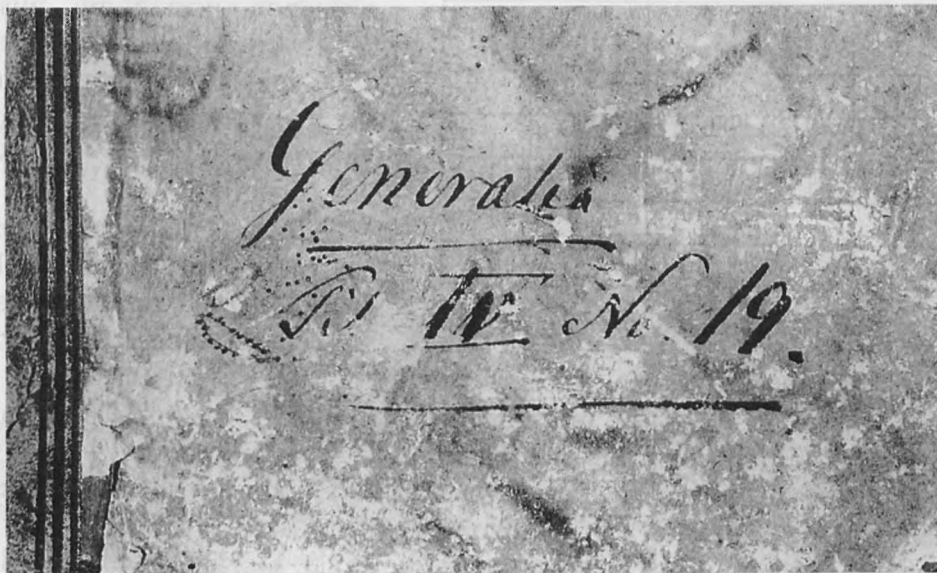 Generalia
IV No. 19.